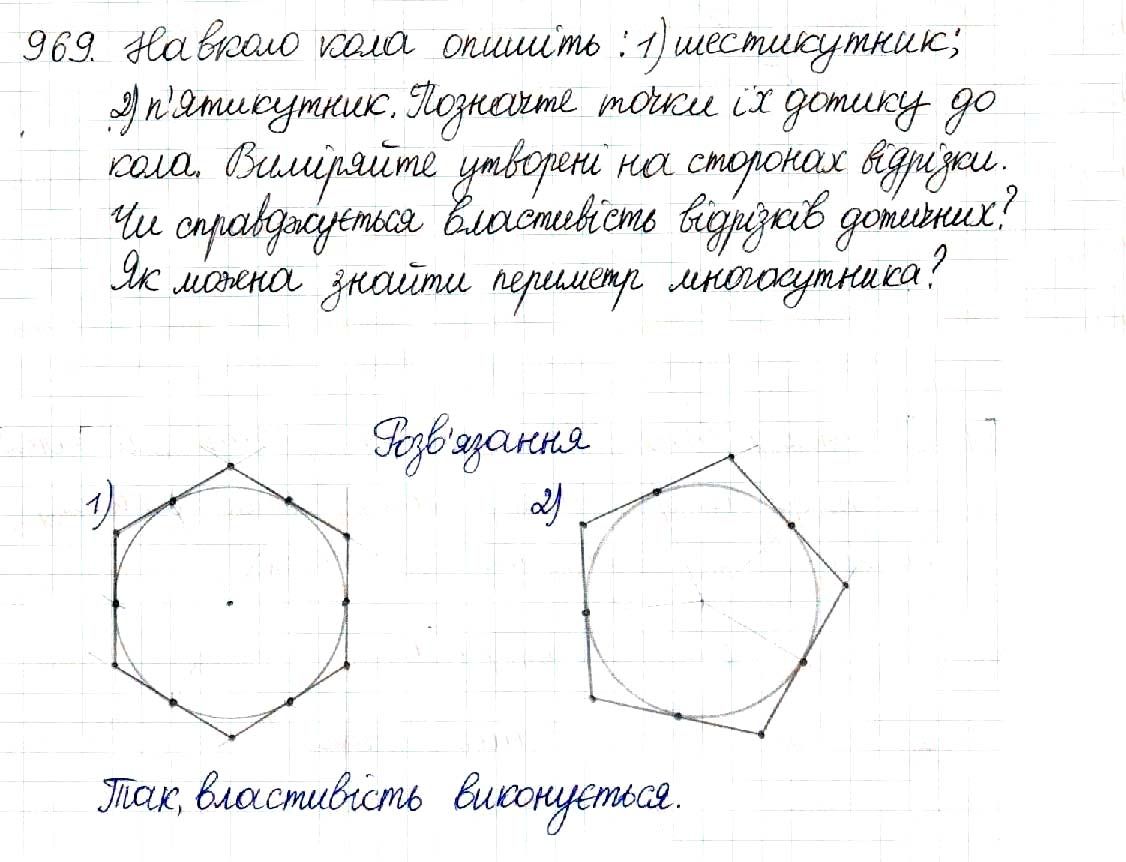 969. Навколо кола опишіть : 1) шестикутник;
2) п'ятикутник. Позначте точки їх дотику до
кола. Виміряйте утворені на сторонах відрізки.
Чи справджується властивість відрізків дотичних?
Як можна знайти периметр многокутника?
Розв'язання
1)
2)
Так, властивість виконується.